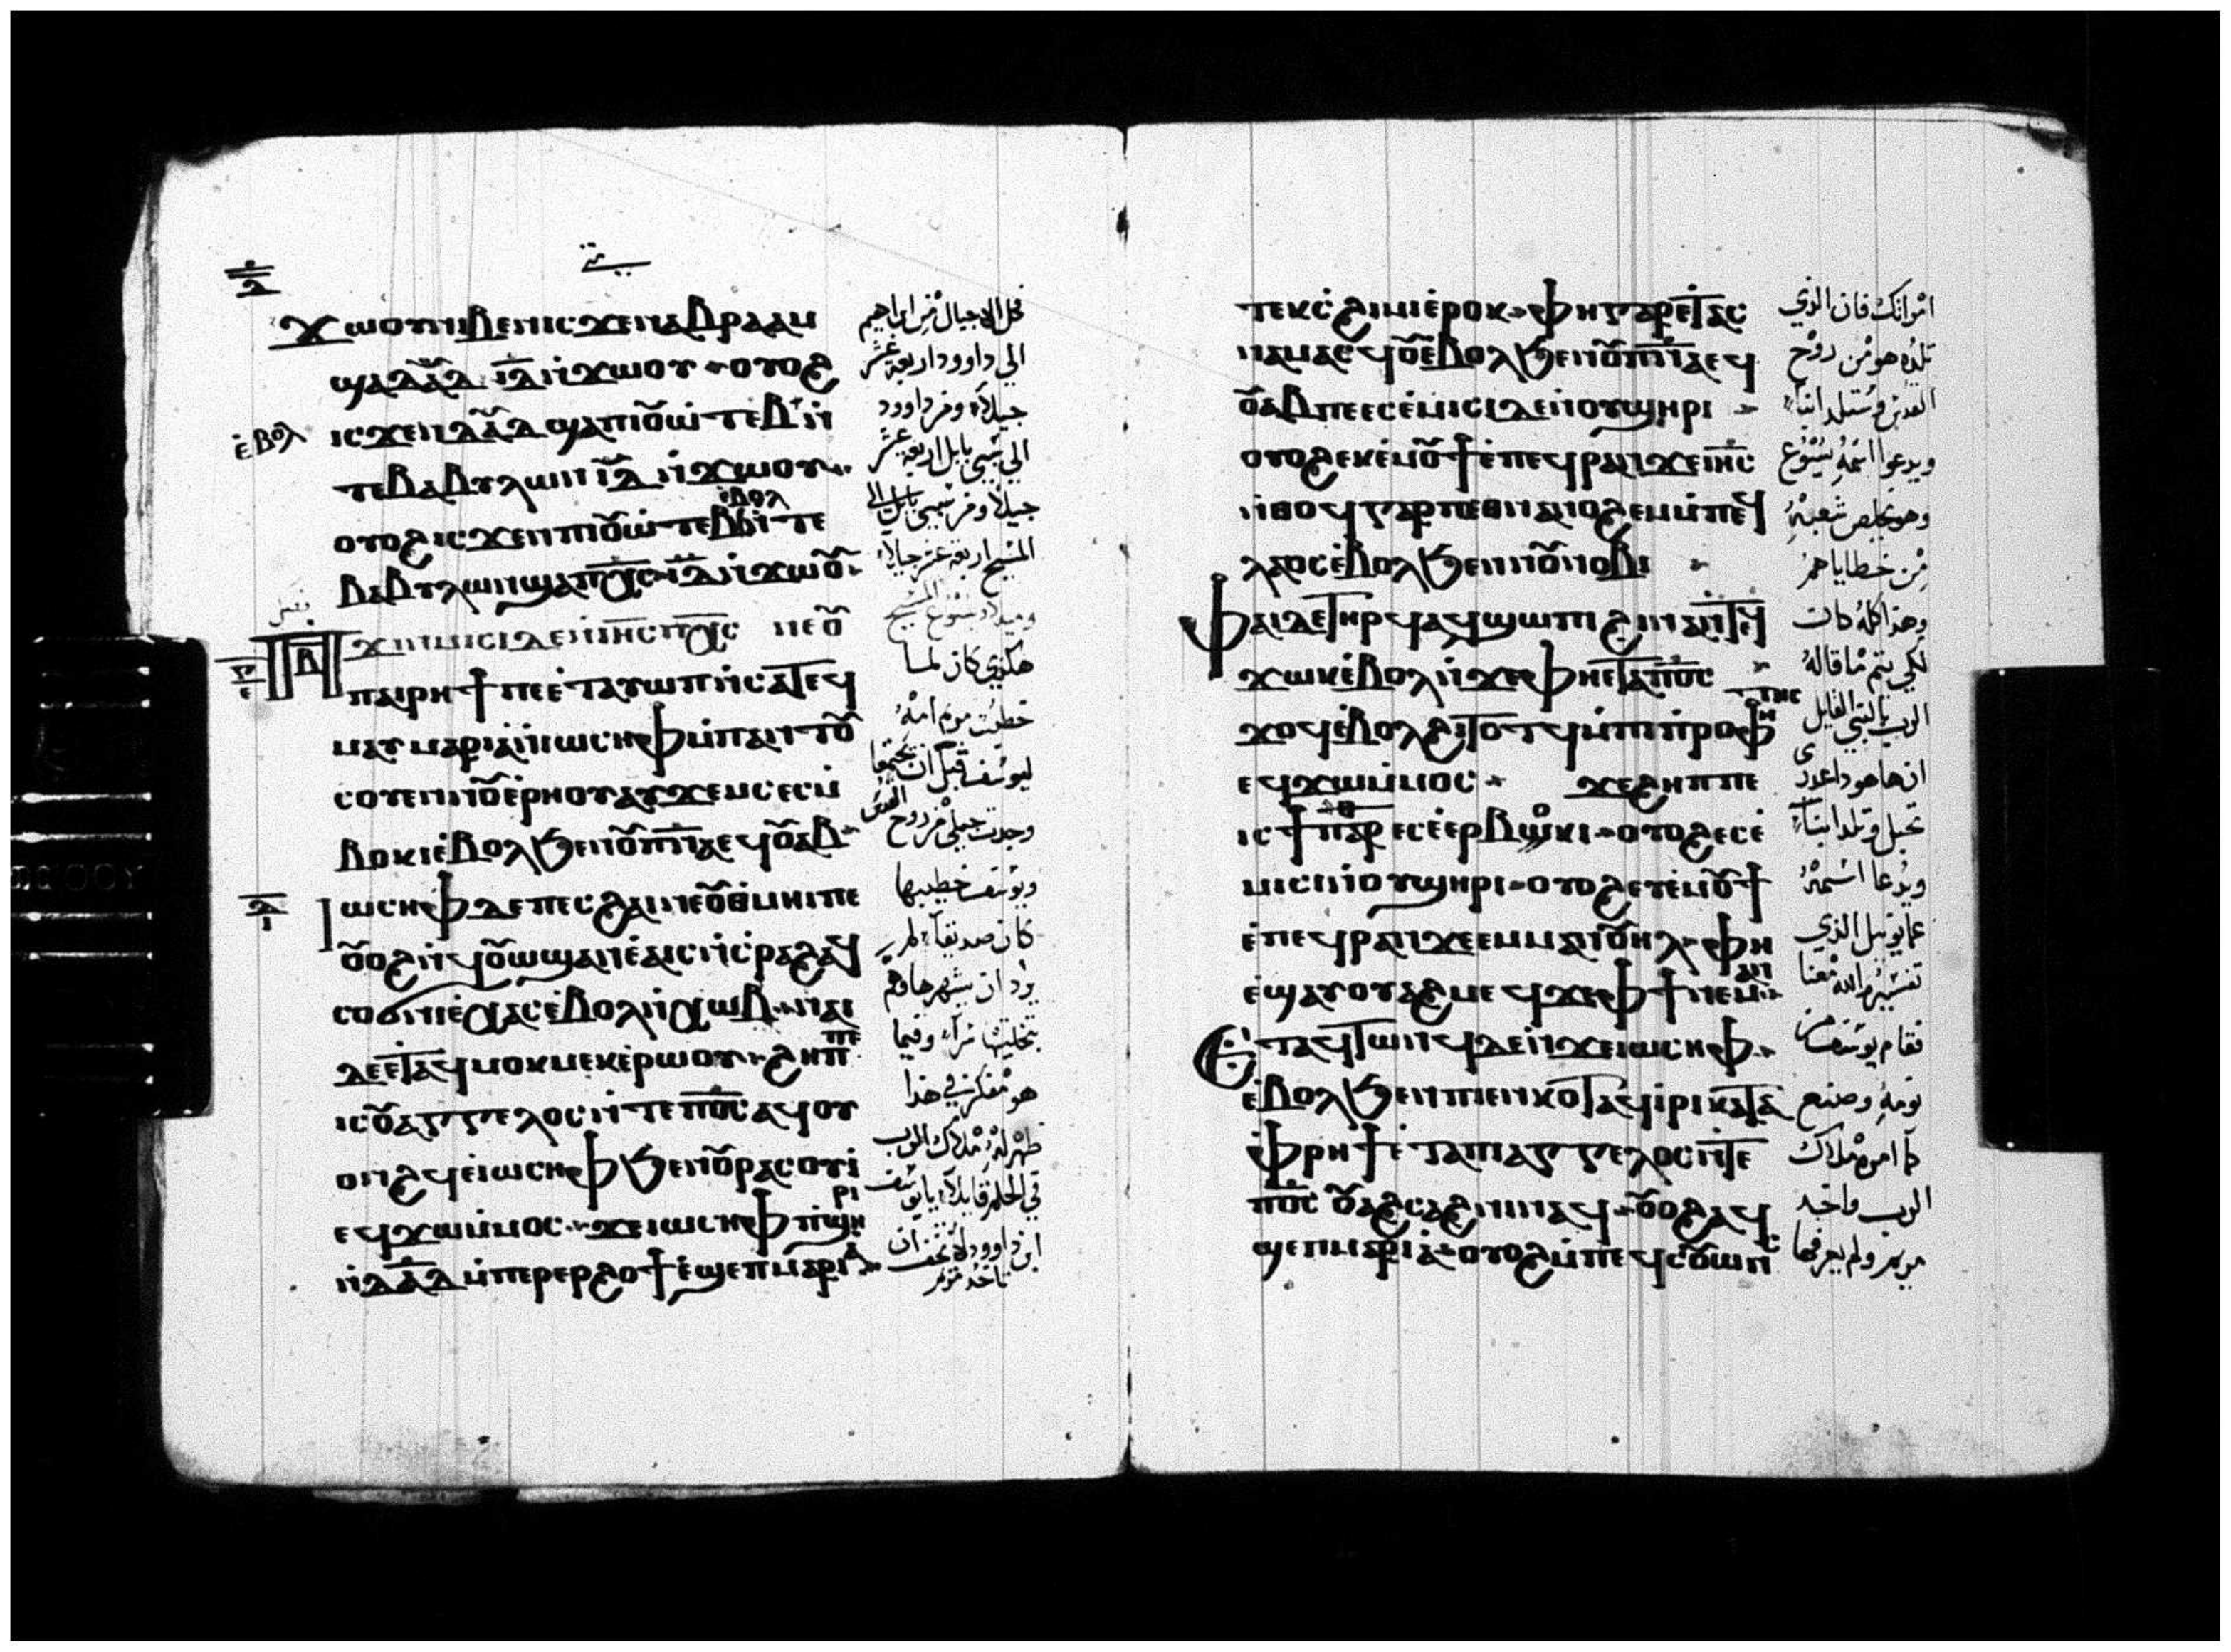 ϫⲱⲟⲩⲛⲓⲃⲉⲛⲓⲥϫⲉⲛⲁⲃⲣⲁⲁⲙ
ϣⲁⲇⲁ̅ⲇ ⲓ̅ⲇ ⲛ̀ϫⲱⲟⲩ ⲟⲩⲟϩ
ⲉ̀ⲃⲟⲗ
ⲓⲥϫⲉⲛⲇⲁ̅ⲇ ϣⲁⲡⲓⲟⲩⲱⲧⲉⲃ ⲛ̀
ⲧⲉⲃⲁⲃⲩⲗⲱⲛ ⲓ̅ⲇ ⲛ̀ϫⲱⲟⲩ
ⲟⲩⲟϩⲓⲥϫⲉⲛⲡⲓⲟⲩⲱⲧⲉⲃ ⲉ̀ⲃⲟⲗ ⲛ̀ⲧⲉ
ⲃⲁⲃⲩⲗⲱⲛϣⲁⲡⲭ̅ⲥ ⲓ̅ⲇ ⲛ̀ϫⲱⲟⲩ
ⲡϫⲓⲛⲙⲓⲥⲓⲇⲉⲛ̀ⲓⲏ̅ⲥⲡⲭ̅ⲥ ⲛⲉⲟⲩ
ⲡⲁⲓⲣⲏϯⲡⲉⲉ̀ⲧⲁⲩⲱⲡⲛ̀ⲥⲁⲧⲉϥ
ⲙⲁⲩⲙⲁⲣⲓⲁⲛ̀ⲓⲱⲥⲏⲫⲙ̀ⲡⲁⲧⲟⲩ
ⲥⲟⲩⲉⲛⲛⲟⲩⲉ̀ⲣⲏⲟⲩⲁⲩϫⲉⲙⲥⲉⲥⲙ̀
ⲃⲟⲕⲓⲉ̀ⲃⲟⲗϧⲉⲛⲟⲩⲡ̅ⲛ̅ⲁⲉϥⲟⲩⲁⲃ
ⲓⲱⲥⲏⲫⲇⲉⲡⲉⲥϩⲁⲓⲛⲉⲟⲩⲑⲙⲏⲓⲡⲉ
ⲟⲩⲟϩⲛ̀ϥⲟⲩⲱϣⲁⲛⲉ̀ⲁⲓⲥⲛ̀ⲥ̀ⲣⲁϩⲁϥ
ⲥⲟϭⲛⲓⲉ̀ⲭⲁⲥⲉ̀ⲃⲟⲗⲛ̀ⲭⲱⲃ ⲛⲁⲓ
ⲇⲉⲉ̀ⲧⲁϥⲙⲟⲕⲙⲉⲕⲉ̀ⲣⲱⲟⲩ ϩⲏⲡⲡⲉ
ⲓⲥⲟⲩⲁⲅⲅⲉⲗⲟⲥⲛ̀ⲧⲉⲡ⳪ⲁϥⲟⲩ
ⲟⲛϩϥⲉ̀ⲓⲱⲥⲏⲫϧⲉⲛⲟⲩⲣⲁⲥⲟⲩⲓ̀
ⲉϥϫⲱⲙ̀ⲙⲟⲥ ϫⲉⲓⲱⲥⲏⲫⲡ̀ϣⲏⲣⲓ
ⲛ̀ⲇⲁ̅ⲇⲙ̀ⲡⲉⲣⲉⲣϩⲟϯⲉ̀ϣⲉⲡⲙⲁⲣⲓⲁ
كل الاجيال من ابراهيم
الى داوود اربعة عشر
جيلاً ومن داوود
الى سبى بابل اربعة عشر
جيلاً ومن سبى بابل الى
المسيح اربعة عشر جيلاً
وميلاد يسوع المسيح
هكذى كان لما
خطبت مريم امه
ليوسف قبل ان يجتمعا
وجدت حبلى من روح القدس
ويوسف خطيبها
كان صديقاً لم
يرد ان يشهرها وهم
بتخليتها سراً وفيما
هو مفكر فى هذا
ظهر له ملاك الرب
فى الحلم قايلاً يا يوسف
ابن داوود لا تخف ان
تاخد مريم
ⲧⲉⲕⲥ̀ϩⲓⲙⲓⲉ̀ⲣⲟⲕ ⲫⲏⲅⲁⲣⲉⲧⲁⲥ
ⲛⲁⲙⲁⲥϥⲟⲩⲉ̀ⲃⲟⲗϧⲉⲛⲟⲩⲡ̅ⲛ̅ⲁⲉϥ
ⲟⲩⲁⲃⲡⲉⲉⲥⲉ̀ⲙⲓⲥⲓⲇⲉⲛ̀ⲟⲩϣⲏⲣⲓ
ⲟⲩⲟϩⲉⲕⲉ̀ⲙⲟⲩϯⲉ̀ⲡⲉϥⲣⲁⲛϫⲉⲓⲏ̅ⲥ
ⲛ̀ⲑⲟϥⲅⲁⲣⲡⲉⲑⲛⲁⲛⲟϩⲉⲙⲙ̀ⲡⲉϥ
ⲗⲁⲟⲥⲉ̀ⲃⲟⲗϧⲉⲛⲛⲟⲩⲛⲟⲃⲓ
ⲫⲁⲓⲇⲉⲧⲏⲣϥⲁϥϣⲱⲡⲓϩⲓⲛⲁⲛ̀ⲧⲉϥ
ϫⲱⲕⲉ̀ⲃⲟⲗⲛ̀ϫⲉⲫⲏⲉⲧⲁⲡ⳪
ϫⲟϥⲉ̀ⲃⲟⲗϩⲓⲧⲟⲧϥⲙ̀ⲡⲓⲡ̀ⲣⲟⲫⲏⲧⲏⲥ
ⲉϥϫⲱⲙ̀ⲙⲟⲥ ϫⲉϩⲏⲡⲡⲉ
ⲓⲥϯⲡⲁⲣⲑ ⲉⲥⲉ̀ⲉⲣⲃⲟⲕⲓ ⲟⲩⲟϩⲉⲥⲉ̀
ⲙⲓⲥⲓⲛ̀ⲟⲩϣⲏⲣⲓ ⲟⲩⲟϩⲉⲩⲉ̀ⲙⲟⲩϯ
ⲉ̀ⲡⲉϥⲣⲁⲛϫⲉⲉⲙⲙⲁⲛⲟⲩⲏⲗ ⲫⲏ
ⲉ̀ϣⲁⲩⲟⲩⲁϩⲙⲉϥϫⲉⲫϯⲛⲉⲙⲁⲛ
ⲉ̀ⲧⲁϥⲧⲱⲛϥⲇⲉⲛ̀ϫⲉⲓⲱⲥⲏⲫ
ⲉ̀ⲃⲟⲗϧⲉⲛⲡⲓⲉⲛⲕⲟⲧⲁϥⲓ̀ⲣⲓⲕⲁⲧⲁ
ⲫⲣⲏϯⲉ̀ⲧⲁⲡⲓⲁⲅⲅⲉⲗⲟⲥⲛ̀ⲧⲉ
ⲡ⳪ ⲟⲩⲁϩⲥⲁϩⲛⲓⲛⲁϥ ⲟⲩⲟϩⲁϥ
ϣⲉⲡⲙⲁⲣⲓⲁ ⲟⲩⲟϩⲙ̀ⲡⲉϥⲥⲟⲩⲱⲛⲥ
امراتك فان الذي
تلده هو من روح
القدس وستلد ابناً
ويدعوا اسمه يسوع
وهو يخلص شعبه
من خطاياهم
وهذا كله كان
لكي يتم ما قاله
الرب بالنبي القايل
ان ها هودا عدرى
تحبل وتلد ابناً
ويدعا اسمه
عمانويل الذي
تفسيره الله معنا
فقام يوسف من
نومه وصنع
كما امره ملاك
الرب واخد
مريم ولم يعرفها